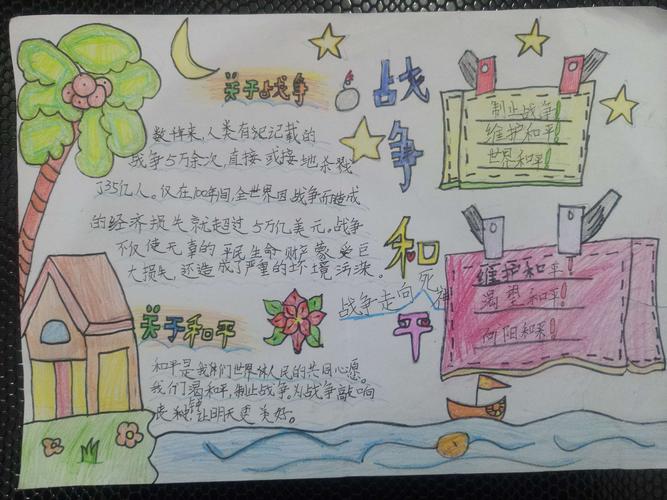 关于战争
数 来,人类有纪记载的
战争5万余次,直接或接地杀戮
了35亿人。仅在100年间,全世界因战争而造成
的经济损失就超过5万亿美元。战争
不仅使无辜的平民生命财产蒙受巨
大损失,还造成了严重的坏境污染。
战争和平
战争走向死神
制止战争!
维护和平!
世界和平!
维护和平!
渴望和平!
向阳和 !
关于和平
和平是我们世界 人民的共同心愿。
我们渴和平,制止战争。为战争敲响
丧钟,让明天更美好。